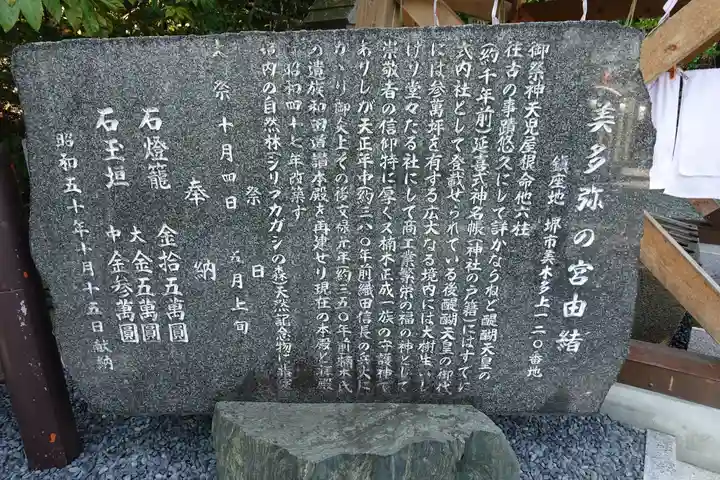 美多弥の宮由緒
鎮座地　堺市美木多上一二〇番地
御祭神天児屋根命他六柱
往古の事蹟悠久にして詳かならねど醍醐天皇の
(約千年前)延喜式神名帳(神社の戸籍)にはすでに
式内社として登載せられている後醍醐天皇の御代
には参萬坪を有する広大なる境内には大樹生い し
げり堂々たる社にして商工業繁栄の福の神として
崇敬者の信仰特に厚く又楠木正成一族の守護神で
ありしが天正年中(約三八〇年前織田信長の兵火に
かゝり御炎上その後文禄元年約三五〇年前楠木氏
の遺族和田道讃本殿を再建せり現在の本殿と拝殿
昭和四十七年改築す
境内の自然林(シリブカガシの森)天然記念物に指定
祭　日
大祭十月四日　七月上旬
奉納
石燈籠　金拾五萬圓
大金五萬圓
石玉垣　中金参萬圓
昭和五十年十月十五日献納